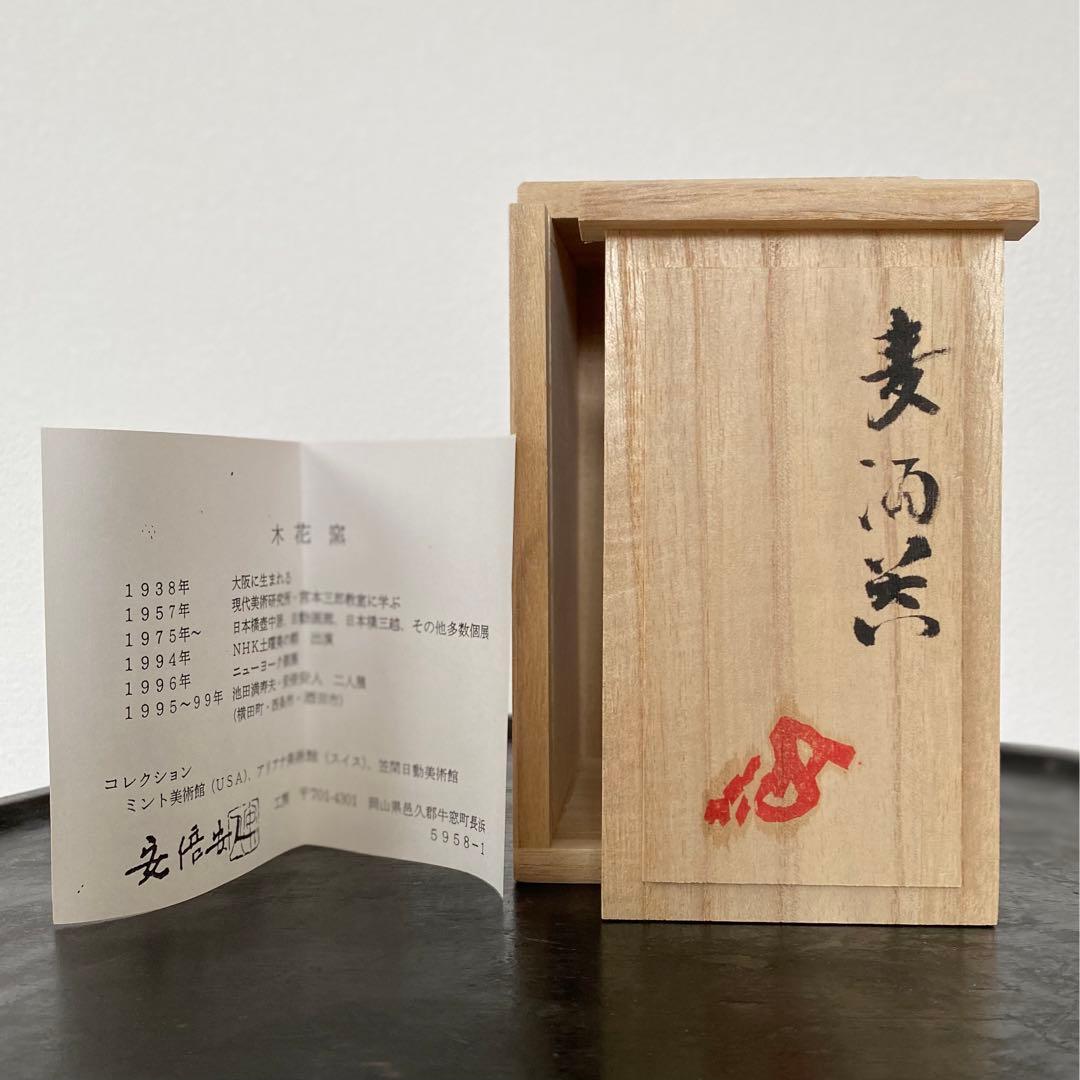 木花窯
1938年 大阪に生まれる
1957年 現代美術研究所・宮本三郎教室に学ぶ
1975年～ 日本橋壺中居、日動画廊、日本橋三越、その他多数個展
1994年 NHK土曜美の朝 出演
1996年 ニューヨーク個展
1995～99年 池田満寿夫・安倍安人 二人展
(横田町・西条市・酒田市)
コレクション
ミント美術館(USA)、アリアナ美術館(スイス)、笠間日動美術館
工房 〒701-4301 岡山県邑久郡牛窓町長浜
5958-1
安倍安人
麦酒呑